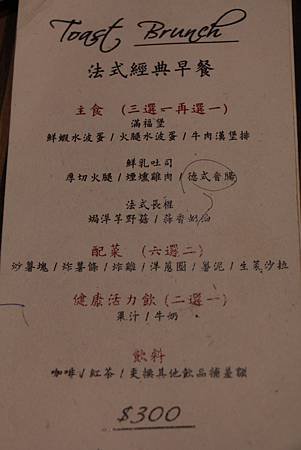 Toast Brunch
法式經典早餐
主食 (三選一再選一)
滿福堡
鮮蝦水波蛋 / 火腿水波蛋 / 牛肉漢堡排
鮮乳吐司
厚切火腿 / 煙燻雞肉 / 德式香腸
法式長棍
焗洋芋野菇 / 蒜香奶油
配菜 (六選二)
炒薯塊 / 炸薯條 / 炸雞 / 洋蔥圈 / 薯泥 / 生菜沙拉
健康活力飲 (二選一)
果汁 / 牛奶
飲料
咖啡 / 紅茶 / 更換其他飲品補差額
$300